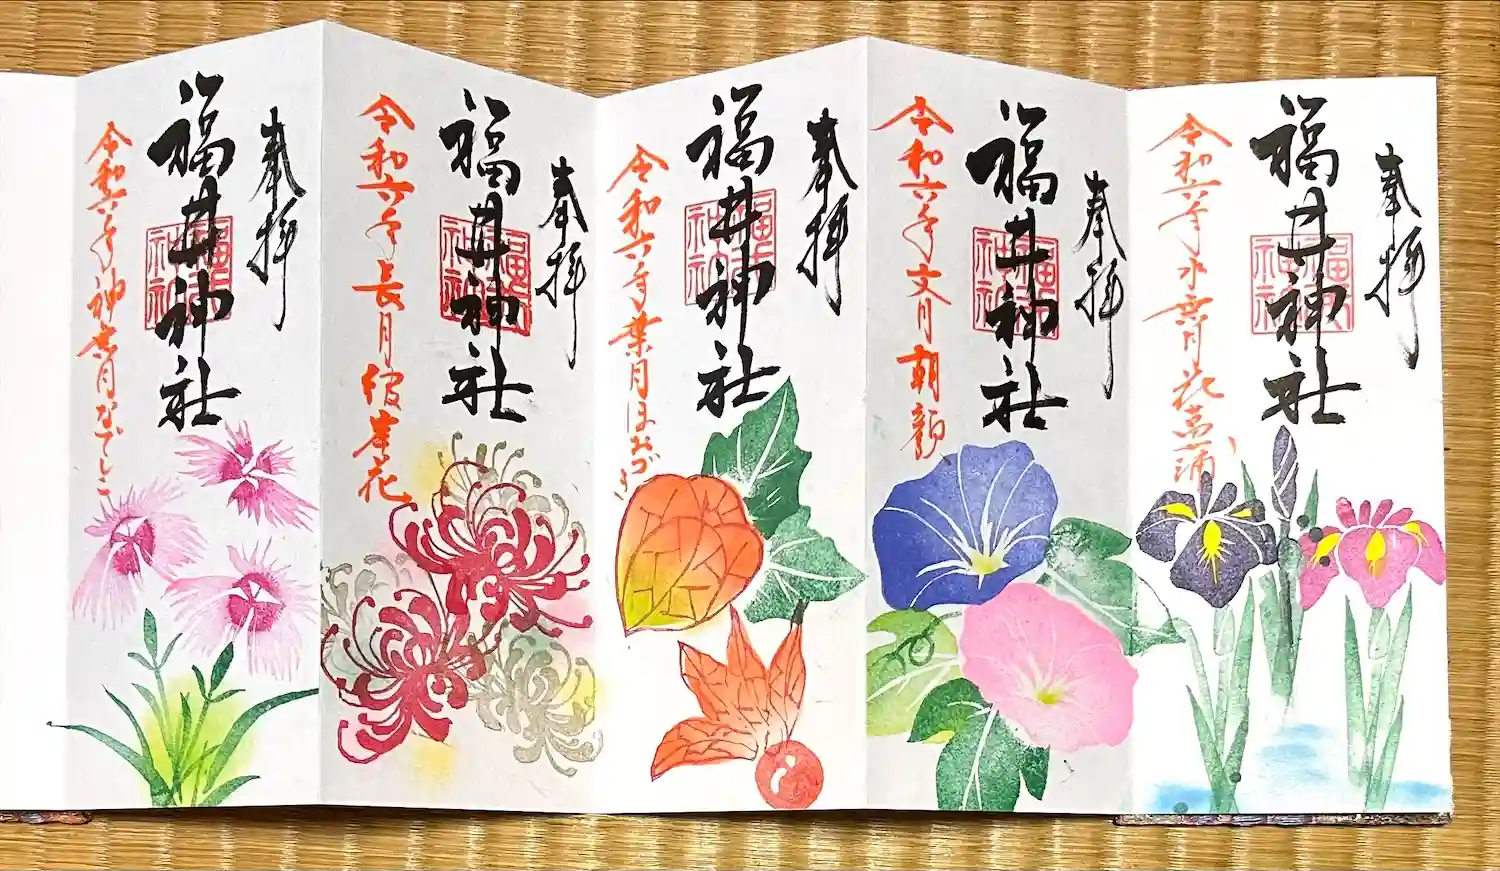 奉拝
福井神社
福井神社
令和六年水無月花菖蒲
奉拝
福井神社
福井神社
令和六年文月朝顔
奉拝
福井神社
福井神社
令和六年葉月ほおづき
奉拝
福井神社
福井神社
令和六年長月彼岸花
奉拝
福井神社
福井神社
令和六年神無月なでしこ